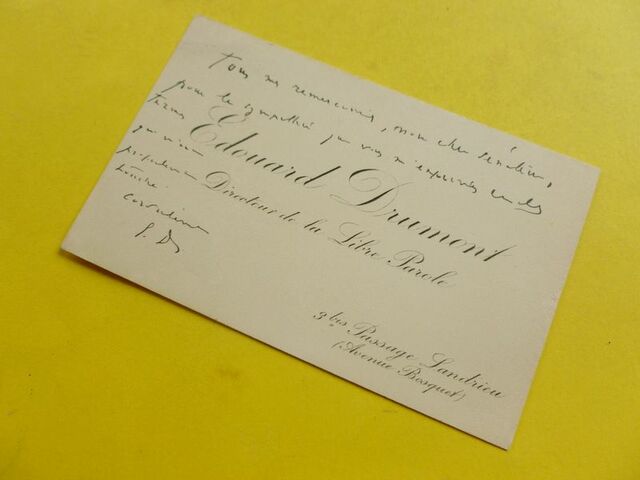 Tous mes remerciements, mon cher sénateur,
pour la sympathie que vous m'exprimez en des
termes
qui m'ont
Edouard Drumont
Directeur de la Libre Parole
Cordialement
E. D.
3 bis Passage Landrieu
(Avenue Bosquet)